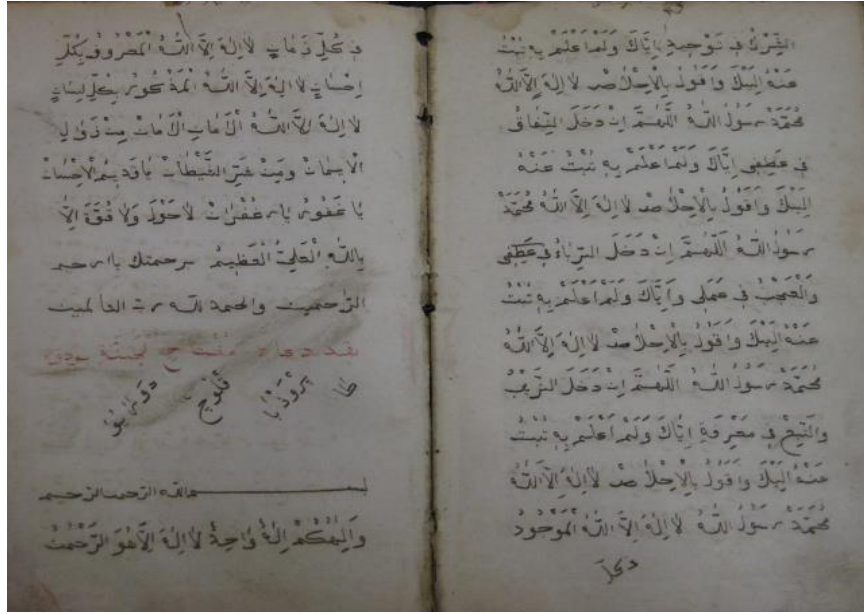 الشرك في توحيدي اياك ولم اعلم به تبت
عنه اليك واقول بالاخلاص لا اله الا الله
محمد رسول الله اللهم ان دخل النفاق
في اياك ولم اعلم به تبت عنه
اليك واقول بالاخلاص لا اله الا الله محمد
رسول الله اللهم ان دخل الرياء في
والعجب في عملى واياك ولم اعلم به تبت
عنه اليك واقول بالاخلاص لا اله الا الله
محمد رسول الله اللهم ان دخل الريب
في معرفة اياك ولم اعلم به تبت
عنه اليك واقول بالاخلاص لا اله الا الله
محمد رسول الله لا اله الا الله الموجود
في كل زمان لا اله الا الله المعروف بكل
احسان لا اله الا الله المذكور بكل لسان
لا اله الا الله الامان الامان من زوال
الايمان ومن شر الشيطان يا قديم الاحسان
يا غفور يا غفران لا حول ولا قوة الا
بالله العلي العظيم برحمتك يا ارحم
الراحمين والحمد لله رب العالمين
دعاء مفتاح
بسم الله الرحمن الرحيم
والهكم اله واحد لا اله الا هو الرحمن